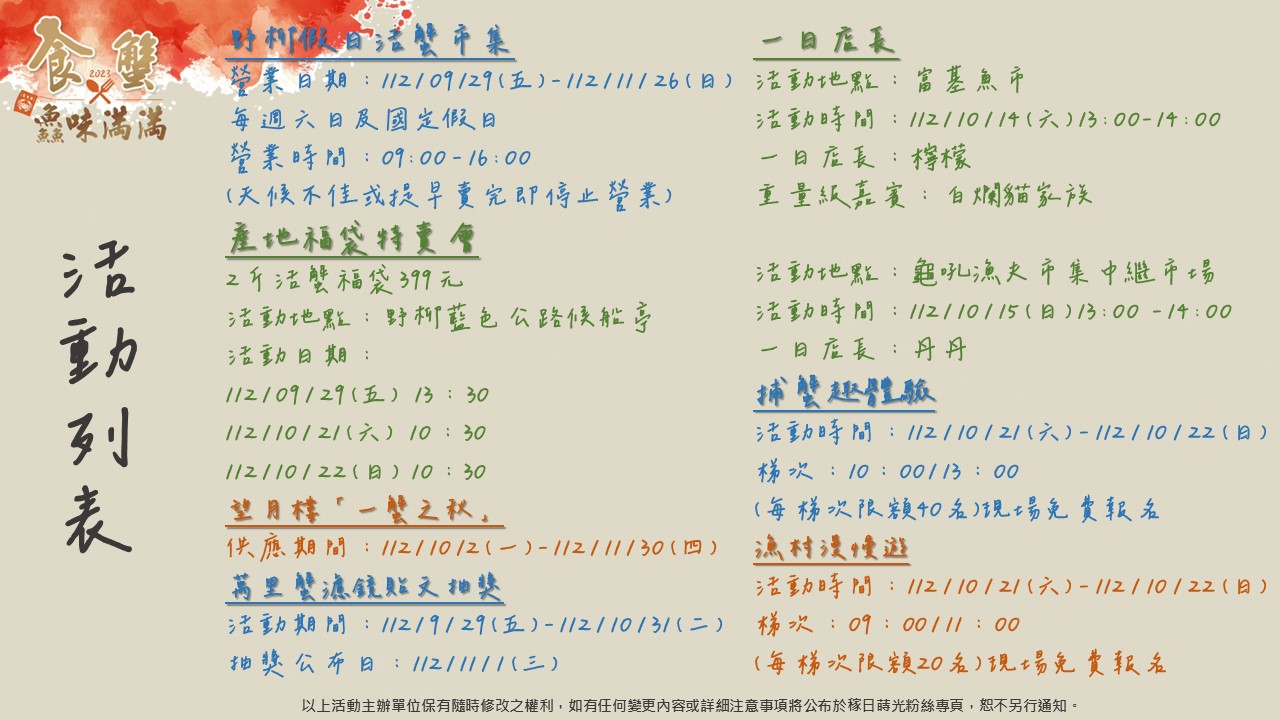 食蟹
2023
鱻味滿滿
活動列表
野柳假日活蟹市集
營業日期：112/09/29(五)-112/11/26(日)
每週六日及國定假日
營業時間：09:00-16:00
(天候不佳或提早賣完即停止營業)
產地福袋特賣會
2斤活蟹福袋399元
活動地點：野柳藍色公路候船亭
活動日期：
112/09/29(五) 13：30
112/10/21(六) 10：30
112/10/22(日) 10：30
望月樓「一蟹之秋」
供應期間：112/10/2(一)-112/11/30(四)
萬里蟹濾鏡貼文抽獎
活動期間：112/9/29(五)-112/10/31(二)
抽獎公布日：112/11/1(三)
一日店長
活動地點：富基魚市
活動時間：112/10/14(六)13:00-14:00
一日店長：檸檬
重量級嘉賓：白爛貓家族
活動地點：龜吼漁夫市集中繼市場
活動時間：112/10/15(日)13:00 -14:00
一日店長：丹丹
捕蟹趣體驗
活動時間：112/10/21(六)-112/10/22(日)
梯次：10：00/13：00
(每梯次限額40名)現場免費報名
漁村漫慢遊
活動時間：112/10/21(六)-112/10/22(日)
梯次：09：00/11：00
(每梯次限額20名)現場免費報名
以上活動主辦單位保有隨時修改之權利，如有任何變更內容或詳細注意事項將公布於稼日蒔光粉絲專頁，恕不另行通知。